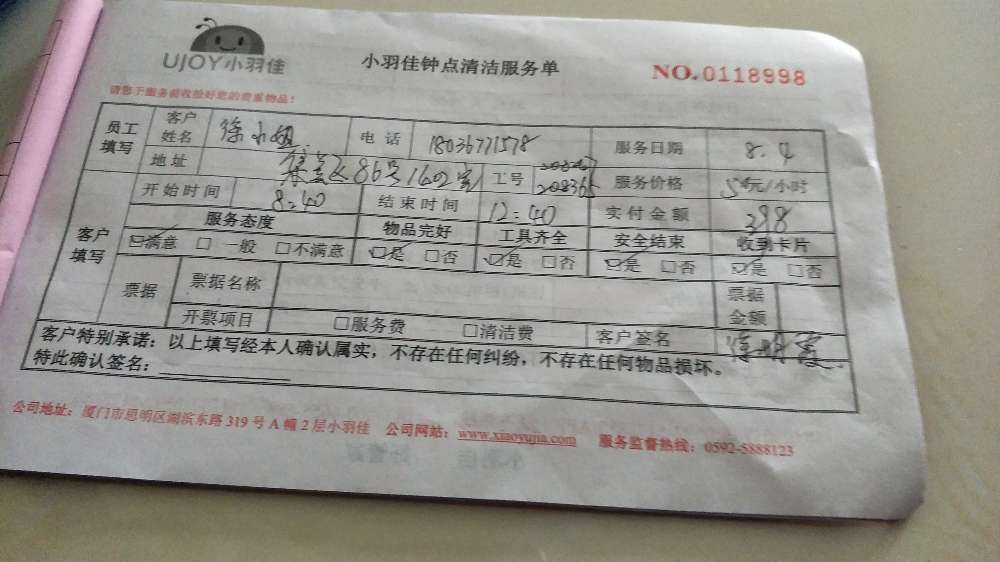 UJOY小羽佳
小羽佳钟点清洁服务单
NO.0118998
请您于服务前收捡好您的贵重物品！
员工填写 客户姓名 徐小姐 电话 18036771578 服务日期 8.4
地址 86号1602室 工号 208365 服务价格 元/小时
开始时间 8:40 结束时间 12:40 实付金额 398
客户填写 服务态度 物品完好 工具齐全 安全结束 收到卡片
☑满意 □一般 □不满意 ☑是 □否 ☑是 □否 ☑是 □否 ☑是 □否
票据 票据名称 票据金额
开票项目 □服务费 □清洁费 客户签名
客户特别承诺：以上填写经本人确认属实，不存在任何纠纷，不存在任何物品损坏。
特此确认签名：
公司地址：厦门市思明区湖滨东路319号A幢2层小羽佳 公司网站：www.xiaoyujia.com 服务监督热线：0592-5888123